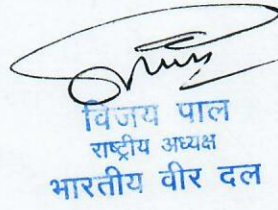 विजय पाल
राष्ट्रीय अध्यक्ष
भारतीय वीर दल